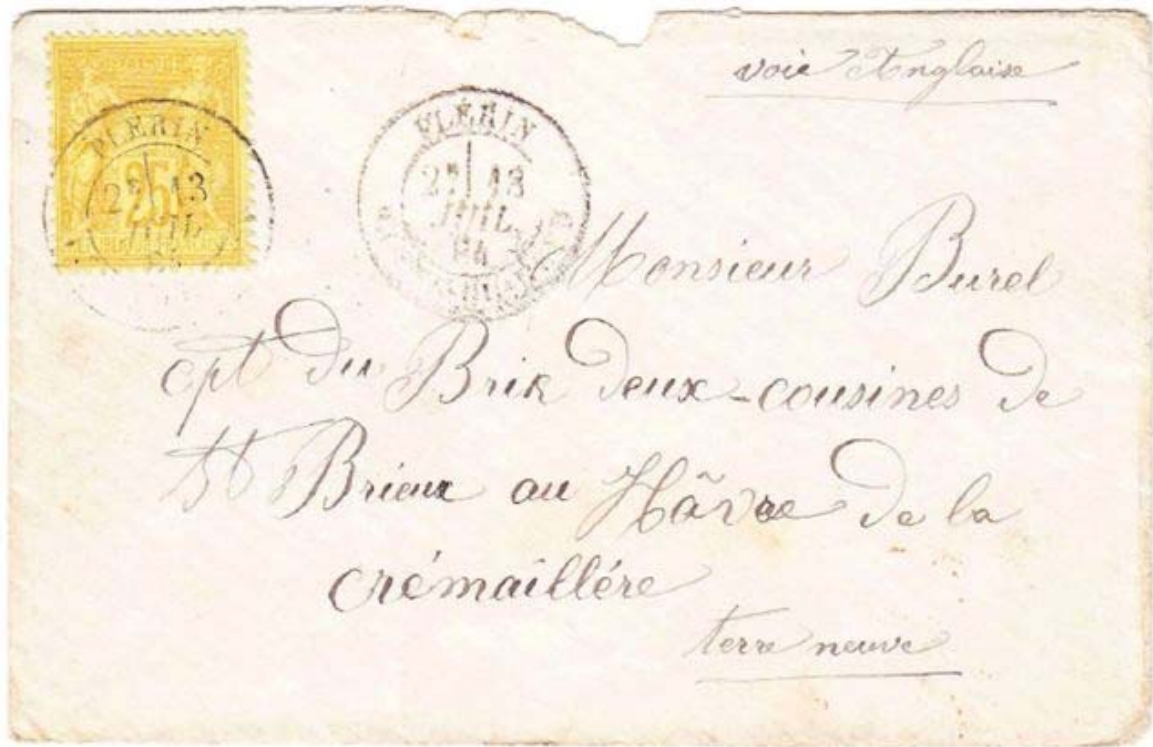 voie Anglaise
PLÉRIN
25
2E 13
JUIL
PLÉRIN
2E 13
JUIL
84
Monsieur Burel
cpt du Brik deux-cousines de
St Brieux au Hâvre de la
crémaillére
terre neuve